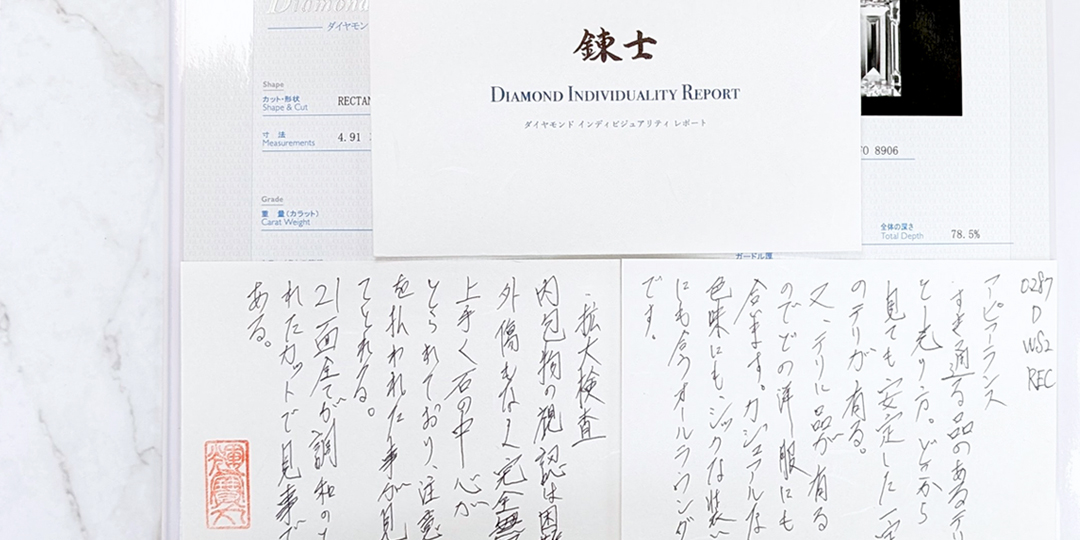 Diamond
ダイヤモン
Shape
カット・形状
Shape & Cut
RECTAN
寸 法
Measurements
4.91
Grade
重 量(カラット)
Carat Weight
錬士
DIAMOND INDIVIDUALITY REPORT
ダイヤモンド インディビジュアリティ レポート
8906
全体の深さ
Total Depth
78.5%
ガードル厚
0287
D
VVS2
REC
アピアランス
・すき通る品のあるテリ
と光り方。どこから
見ても安定した一定
のテリが有る。
又、テリに品が有る
のでどの洋服にも
合います。カジュアルな
色味にも、シックな装い
にも合うオールラウンダ
です。
・拡大検査
内包物の視認は困難
外傷もなく完全無
上手く石の中心が
とられており、注意
を払われた事が見
てとれる。
21面全てが調和のと
れたカットで見事で
ある。